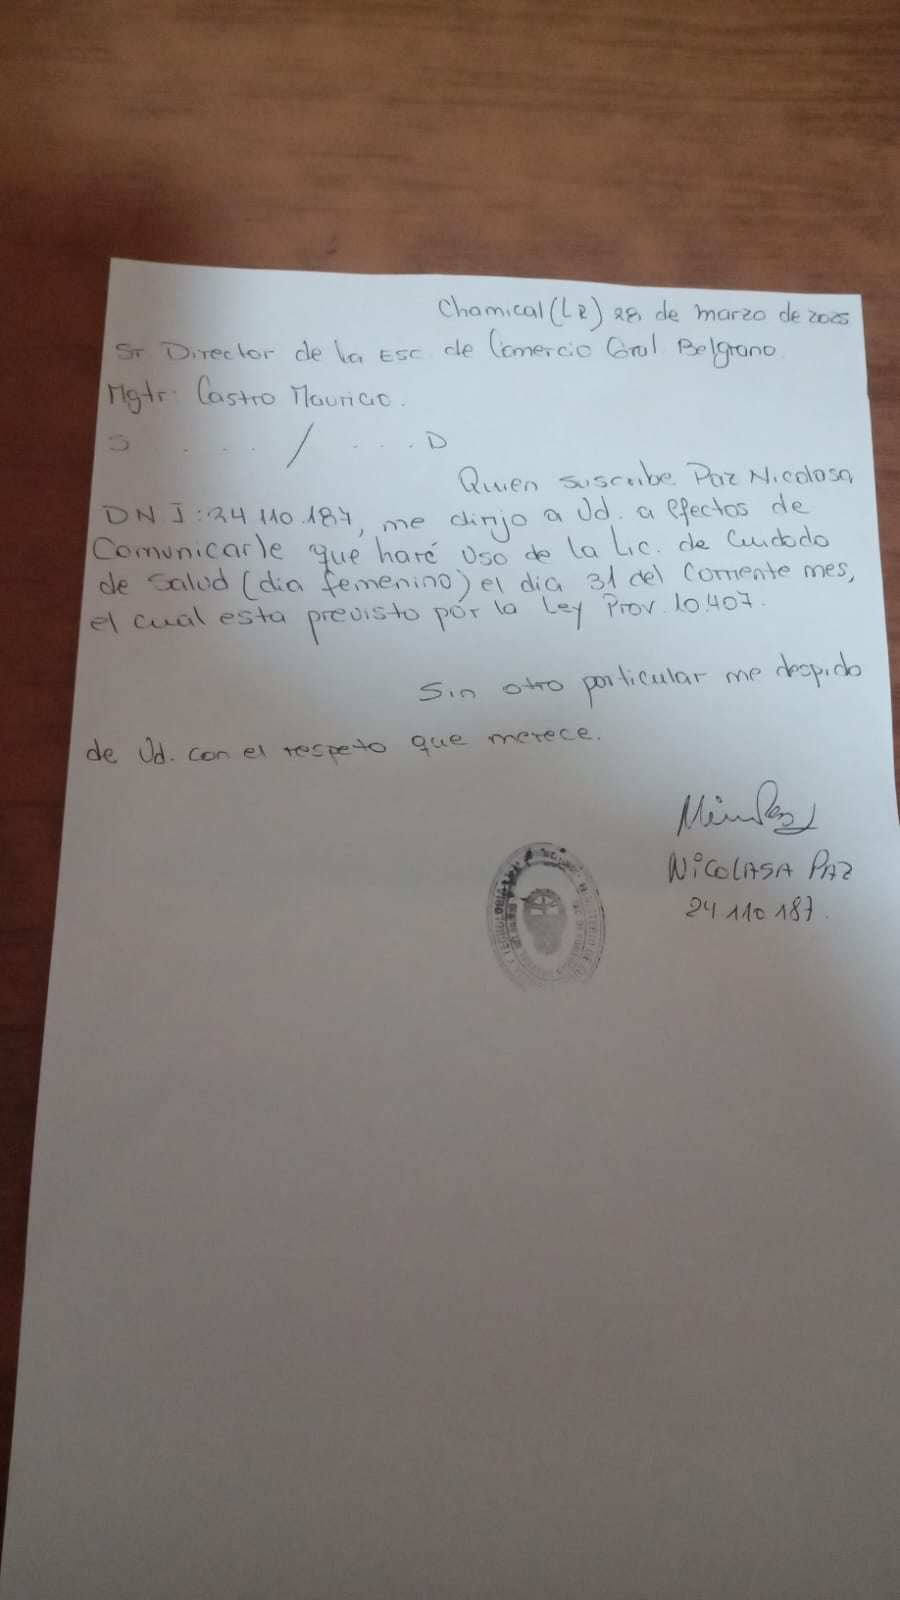 Chamical (LR) 28 de marzo de 2025
Sr. Director de la Esc. de Comercio Gral. Belgrano.
Mgtr: Castro Mauricio.
S . . . . / . . . . D
Quien suscribe Paz Nicolasa,
DNI: 24.110.187, me dirijo a Ud. a efectos de
Comunicarle que haré uso de la Lic. de Cuidado
de Salud (dia femenino) el dia 31 del corriente mes,
el cual esta previsto por la Ley Prov. 10.407.
Sin otro particular me despido
de Ud. con el respeto que merece.
NiCOLASA PAZ
24.110.187.
MINISTERIO DE